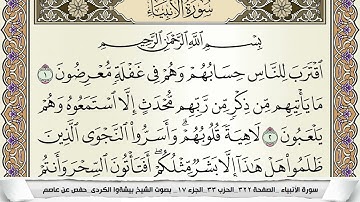 سورة الأنبياء
بِسْمِ اللَّهِ الرَّحْمَٰنِ الرَّحِيمِ
اقْتَرَبَ لِلنَّاسِ حِسَابُهُمْ وَهُمْ فِي غَفْلَةٍ مُّعْرِضُونَ ١
مَا يَأْتِيهِم مِّن ذِكْرٍ مِّن رَّبِّهِم مُّحْدَثٍ إِلَّا اسْتَمَعُوهُ وَهُمْ
يَلْعَبُونَ ٢ لَاهِيَةً قُلُوبُهُمْ ۗ وَأَسَرُّوا النَّجْوَى الَّذِينَ
ظَلَمُوا هَلْ هَٰذَا إِلَّا بَشَرٌ مِّثْلُكُمْ ۖ أَفَتَأْتُونَ السِّحْرَ وَأَنتُمْ
سورة الأنبياء _ الصفحة ٣٢٢ _ الحزب ٣٣ _ الجزء ١٧ _ بصوت الشيخ بيشةوا الكردي _ حفص عن عاصم